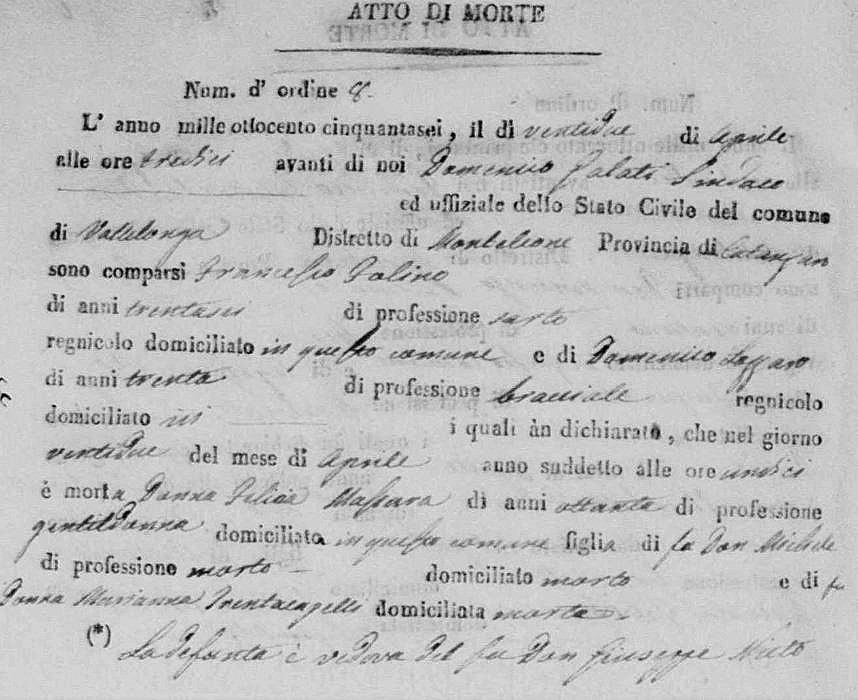 ATTO DI MORTE
Num. d' ordine 8.
L' anno mille ottocento cinquantasei, il dì ventidue di Aprile
alle ore tredici avanti di noi Domenico Galati Sindaco
ed uffiziale dello Stato Civile del comune
di Vallelonga Distretto di Monteleone Provincia di
sono comparsi Francesco
di anni trentasei di professione sarto
regnicolo domiciliato in questo comune e di Domenico
di anni trenta di professione bracciale regnicolo
domiciliato ivi i quali àn dichiarato, che nel giorno
ventidue del mese di Aprile anno suddetto alle ore undici
è morta Donna Felicia Massara di anni ottanta di professione
gentildonna domiciliata in questo comune figlia di fu Don Michele
di professione morto domiciliato morto e di fu
Donna Marianna domiciliata morta
(*) La defunta è vedova del fu Don Giuseppe